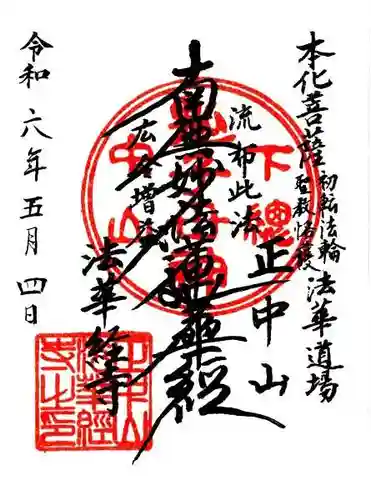 本化菩薩 初転法輪 法華道場
聖教恪護
正中山
流布此法
南無妙法蓮華経
広令増益
法華経寺
令和六年五月四日
下總
中山